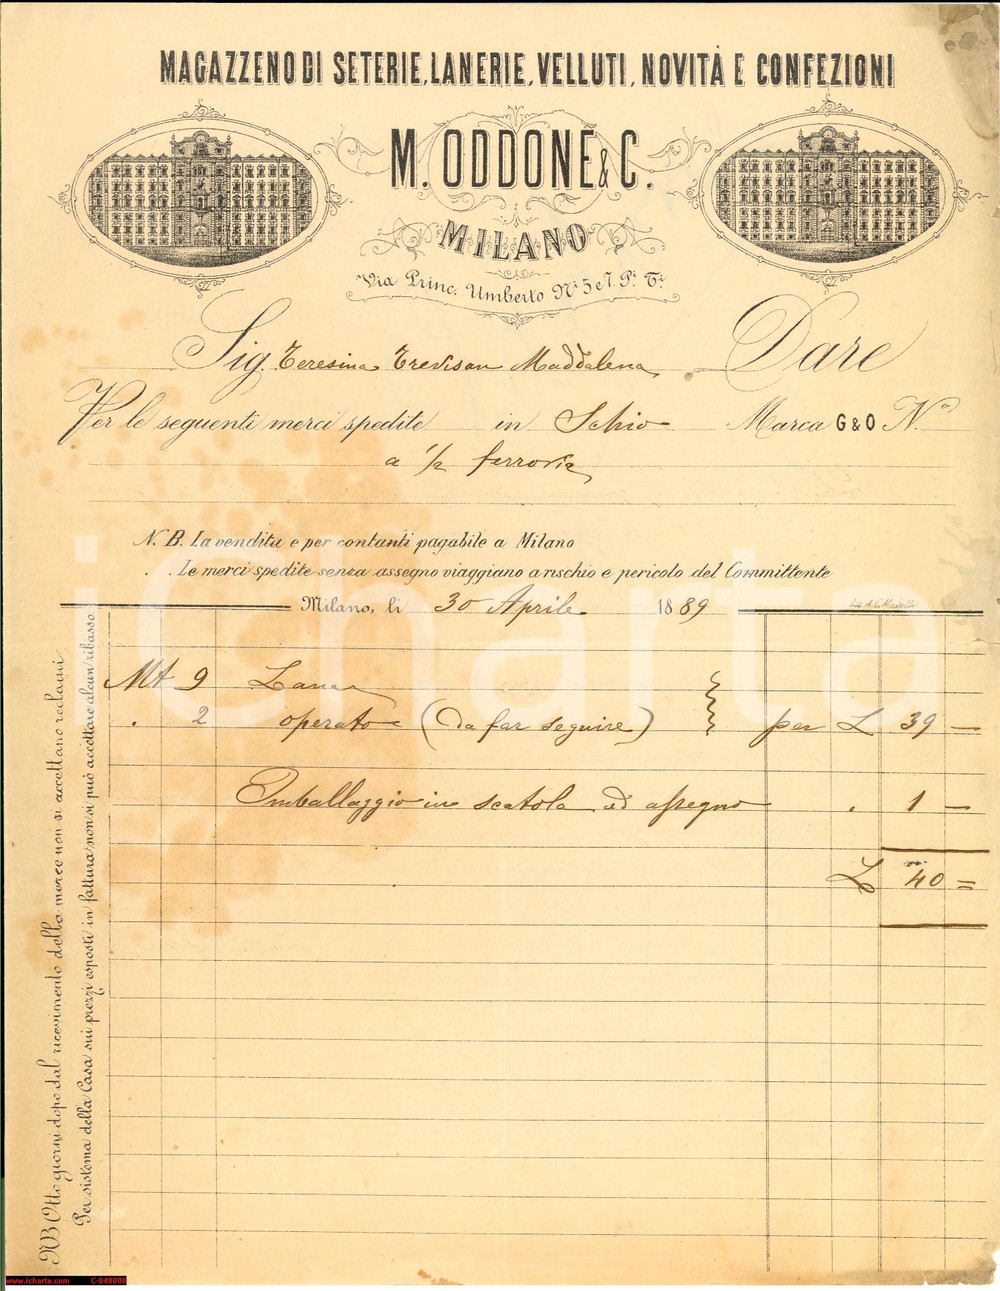 MAGAZZENO DI SETERIE, LANERIE, VELLUTI, NOVITÀ E CONFEZIONI
M. ODDONE & C.
MILANO
Via Princ. Umberto Nⁱ 5 e 7. Pⁱ Tⁱ
Sig. Teresina Trevisan Maddalena Dare
Per le seguenti merci spedite in Schio Marca G & O N.º
a 1/2 ferrovia
N. B. La vendita e per contanti pagabile a Milano
Le merci spedite senza assegno viaggiano a rischio e pericolo del Committente
Milano, li 30 Aprile 1889
Mt 9 Lana
. 2 operato (da far seguire) per L 39 —
Imballaggio in scatola ed assegno . 1 —
L 40 =
NB Otto giorni dopo dal ricevimento della merce non si accettano reclami
Per sistema della Casa sui prezzi esposti in fattura non si può accettare alcun ribasso
icharta
www.icharta.com C-048000